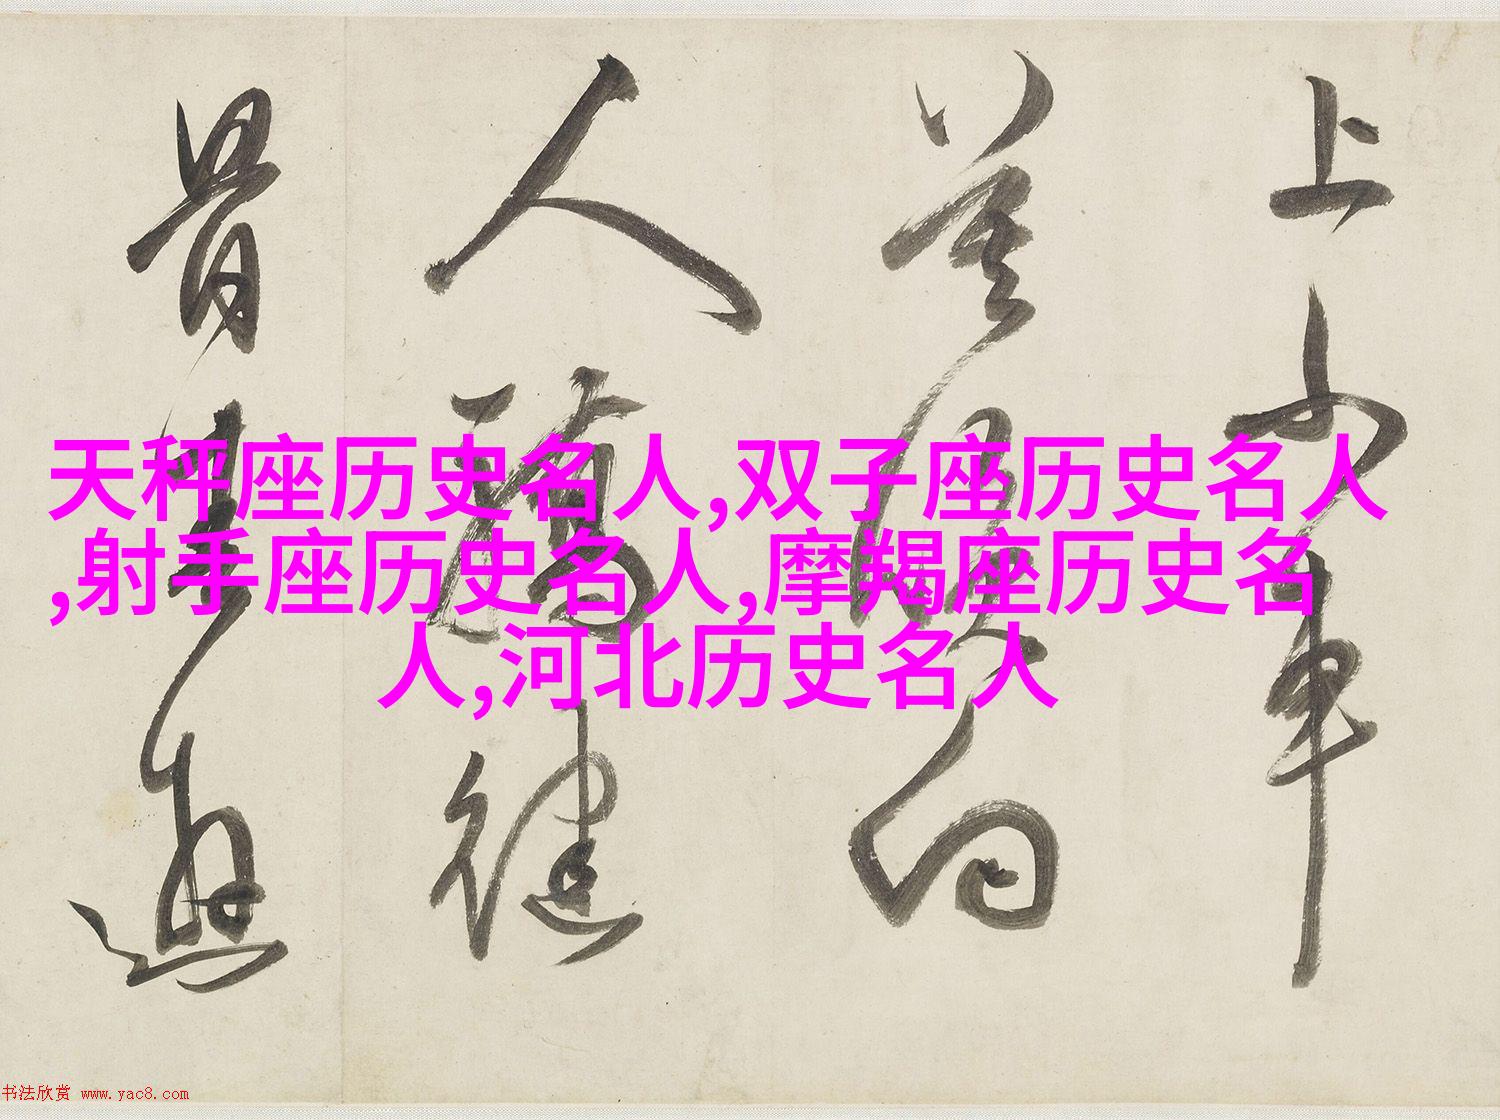 上小車
莫復向
人 健
骨
天秤座历史名人,双子座历史名人
,射手座历史名人,摩羯座历史名
人,河北历史名人
书法欣赏 www.yac8.com